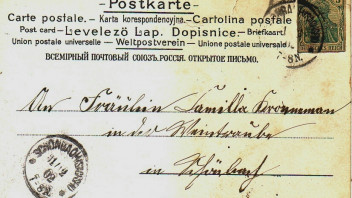 Postkarte
Carte postale. - Karta korespondencyjna. - Cartolina postale
Post card - Levelező Lap. Dopisnice - Briefkaart
Union postale universelle - Weltpostverein - Unione postale universale
ВСЕМІРНЫЙ ПОЧТОВЫЙ СОЮЗЪ. РОССІЯ. ОТКРЫТОЕ ПИСЬМО.
An Fräulein Camilla
in der Weintraube
in Schönbach
SCHÖNBACH